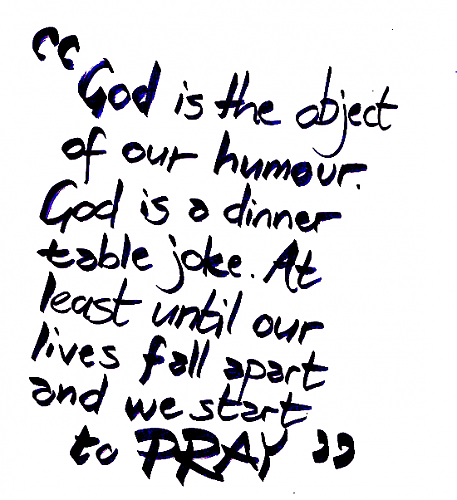 “God is the object
of our humour.
God is a dinner
table joke. At
least until our
lives fall apart
and we start
to PRAY”